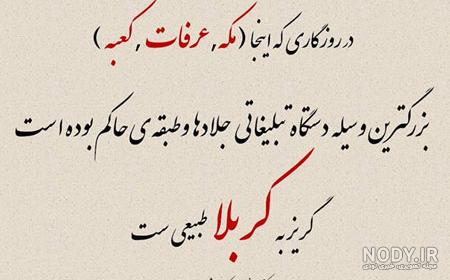 در روزگاری که اینجا (مکه,عرفات ,کعبه )
بزرگترین وسیله دستگاه تبلیغاتی جلادها و طبقه ی حاکم بوده است
گریز به کربلا طبیعی ست
NODY.IR